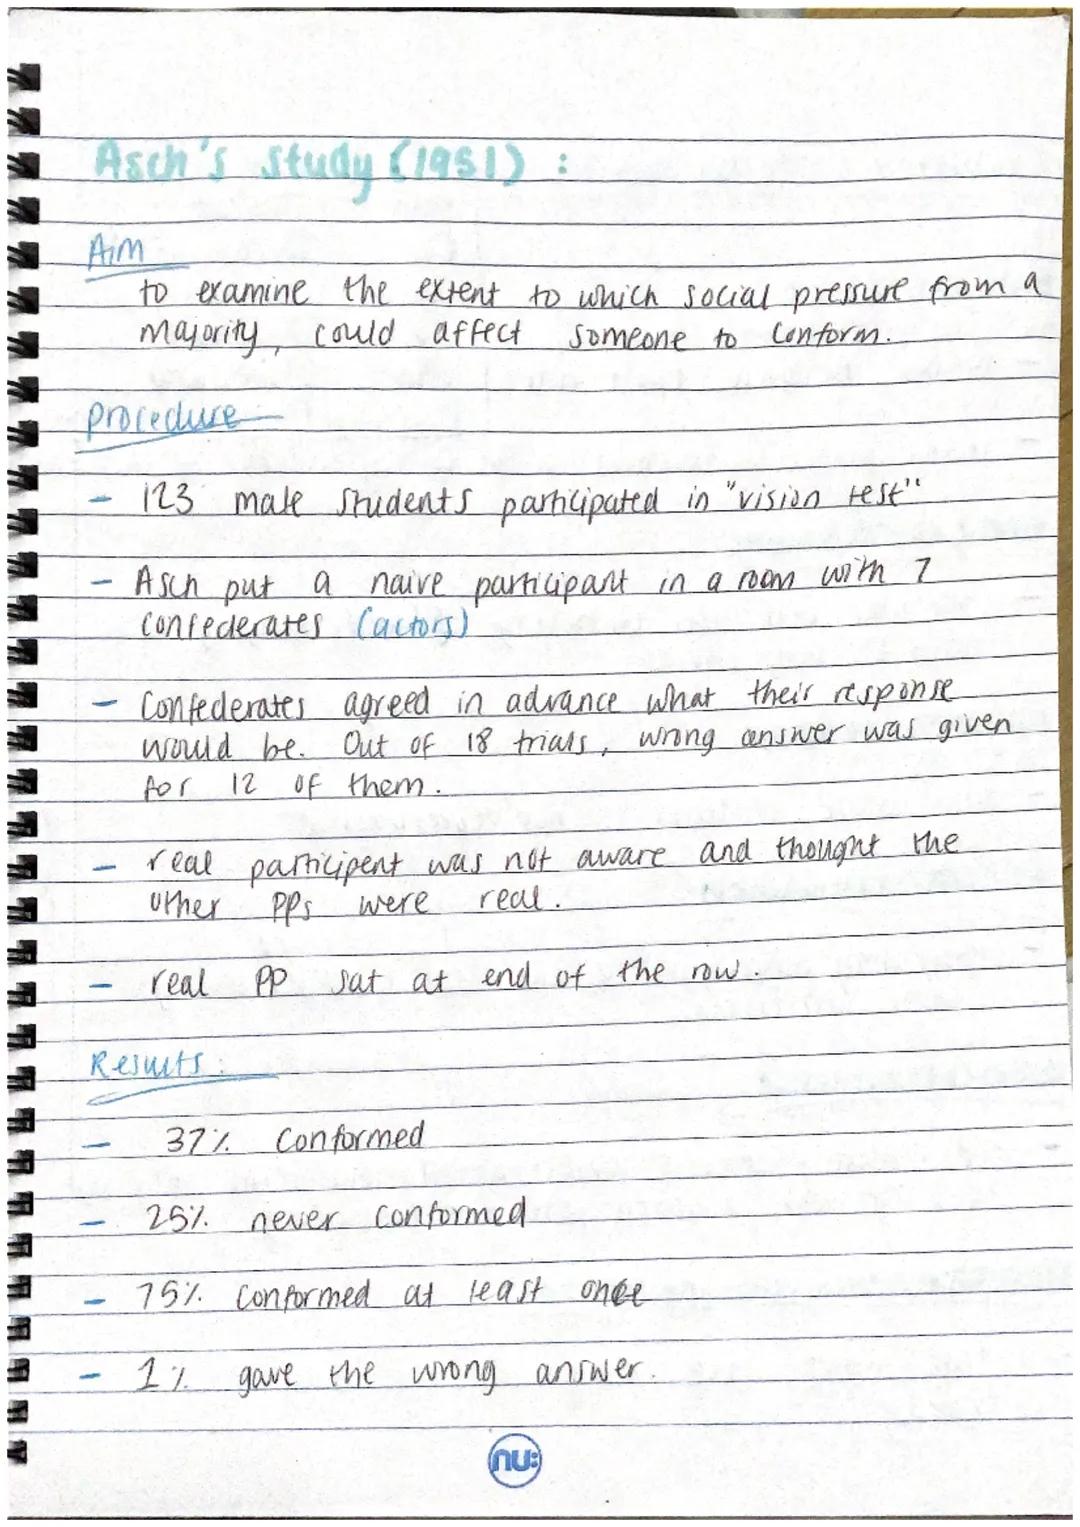 Asch's study (1951) :
Aim
to examine the extent to which social pressure from a
majority, could affect someone to conform.
procedure:
- 123 male students participated in "vision test"
- Asch put a naive participant in a room with 7
confederates (actors)
- Confederates agreed in advance what their response
would be. Out of 18 trials, wrong answer was given
for 12 of them.
- real participent was not aware and thought the
other PPs were real.
- real PP sat at end of the row.
Results:
- 37% Conformed
- 25% never conformed
- 75% conformed at least once
- 1% gave the wrong answer.
nu: